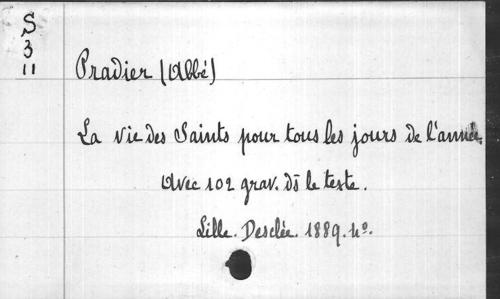 S
3
11
Pradier (Abbé)
La vie des Saints pour tous les jours de l'année.
Avec 102 grav. ds le texte.
Lille. Desclée. 1889. 4º.